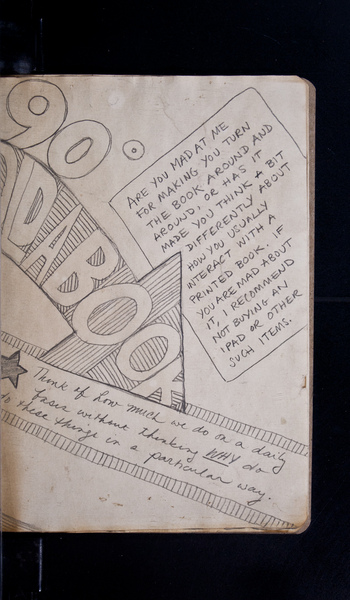 90.
DABOOK
ARE YOU MAD AT ME
FOR MAKING YOU TURN
THE BOOK AROUND AND
AROUND, OR HAS IT
MADE YOU THINK A BIT
DIFFERENTLY ABOUT
HOW YOU USUALLY
INTERACT WITH A
PRINTED BOOK. IF
YOU ARE MAD ABOUT
IT, I RECOMMEND
NOT BUYING AN
IPAD OR OTHER
SUCH ITEMS.
Think of how much we do on a daily
without thinking WHY do
to these things in a particular way.